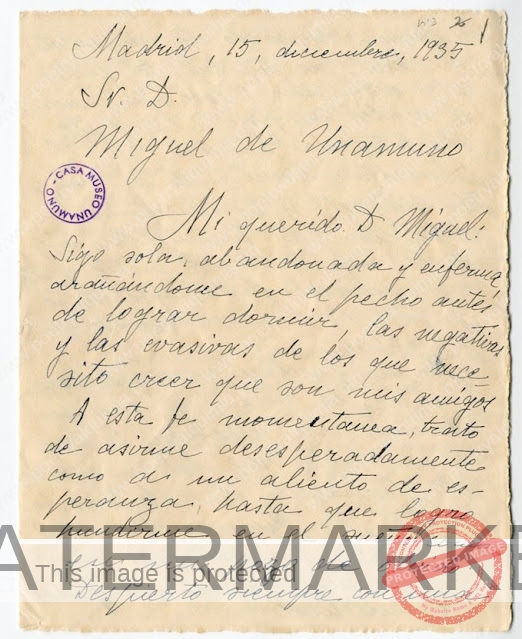 nº3 26 1
Madrid, 15, diciembre, 1935
Sr. D.
Miguel de Unamuno
CASA MUSEO UNAMUNO
Mi querido D Miguel:
Sigo sola, abandonada y enferma
arañándome en el pecho antes
de lograr dormir, las negativas
y las evasivas de los que nece-
sito creer que son mis amigos
A esta fe momentanea, trato
de asirme desesperadamente
como a un aliento de es-
peranza, hasta que logro
hundirme en el
ATERMARKE
This image is protected
PROTECTED IMAGE
Despierto siempre con una